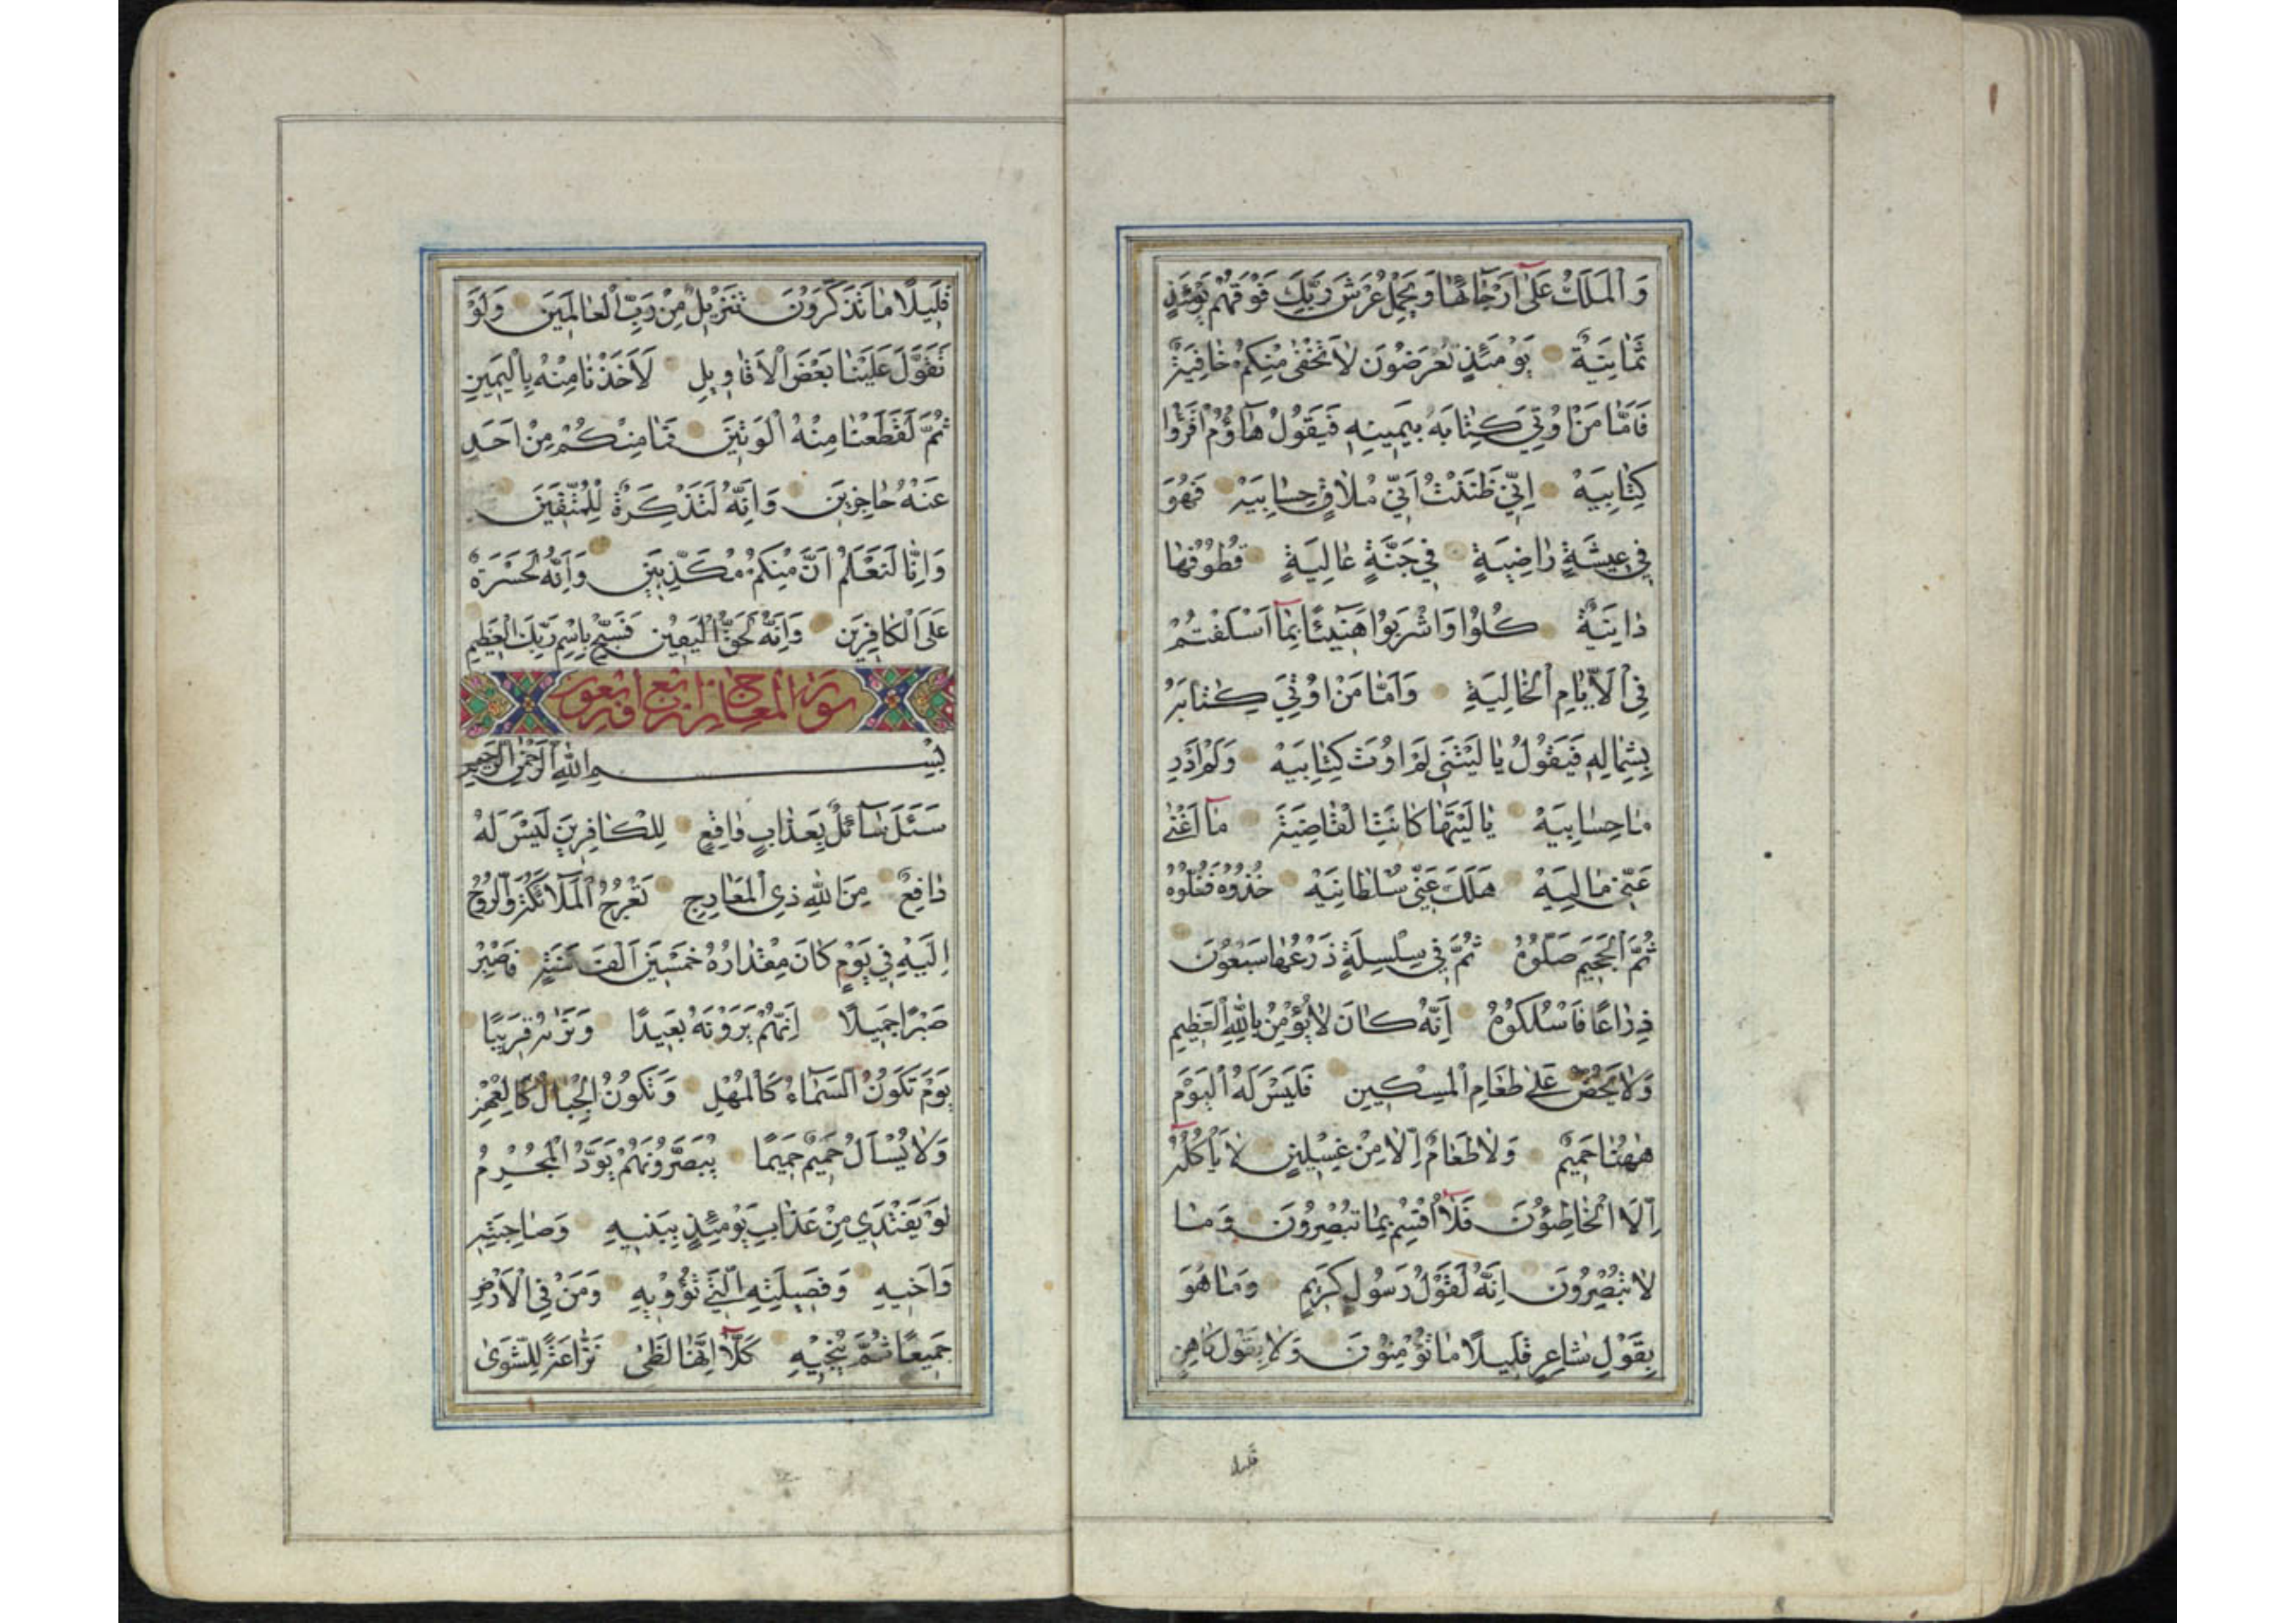 وَالْمَلَكُ عَلٰى اَرْجٰٓائِهٰا وَيَحْمِلُ عَرْشَ رَبِّكَ فَوْقَهُمْ يَوْمَئِذٍ
ثَمٰانِيَةٌ يَوْمَئِذٍ تُعْرَضُونَ لاٰ تَخْفٰى مِنْكُمْ خٰافِيَةٌ
فَاَمّٰا مَنْ اُوتِيَ كِتٰابَهُ بِيَمِينِهِ فَيَقُولُ هٰٓاؤُمُ اقْرَؤُا
كِتٰابِيَهْ اِنِّي ظَنَنْتُ اَنِّي مُلاٰقٍ حِسٰابِيَهْ فَهُوَ
فِي عِيشَةٍ رٰاضِيَةٍ فِي جَنَّةٍ عٰالِيَةٍ قُطُوفُهٰا
دٰانِيَةٌ كُلُوا وَاشْرَبُوا هَنِيٓئًا بِمٰٓا اَسْلَفْتُمْ
فِي الْاَيّٰامِ الْخٰالِيَةِ وَاَمّٰا مَنْ اُوتِيَ كِتٰابَهُ
بِشِمٰالِهِ فَيَقُولُ يٰا لَيْتَنِي لَمْ اُوتَ كِتٰابِيَهْ وَلَمْ اَدْرِ
مٰا حِسٰابِيَهْ يٰا لَيْتَهٰا كٰانَتِ الْقٰاضِيَةَ مٰٓا اَغْنٰى
عَنِّي مٰالِيَهْ هَلَكَ عَنِّي سُلْطٰانِيَهْ خُذُوهُ فَغُلُّوهُ
ثُمَّ الْجَحِيمَ صَلُّوهُ ثُمَّ فِي سِلْسِلَةٍ ذَرْعُهٰا سَبْعُونَ
ذِرٰاعًا فَاسْلُكُوهُ اِنَّهُ كٰانَ لاٰ يُؤْمِنُ بِاللّٰهِ الْعَظِيمِ
وَلاٰ يَحُضُّ عَلٰى طَعٰامِ الْمِسْكِينِ فَلَيْسَ لَهُ الْيَوْمَ
هٰهُنٰا حَمِيمٌ وَلاٰ طَعٰامٌ اِلّاٰ مِنْ غِسْلِينٍ لاٰ يَأْكُلُهُٓ
اِلَّا الْخٰاطِئُونَ فَلآٰ اُقْسِمُ بِمٰا تُبْصِرُونَ وَمٰا
لاٰ تُبْصِرُونَ اِنَّهُ لَقَوْلُ رَسُولٍ كَرِيمٍ وَمٰا هُوَ
بِقَوْلِ شٰاعِرٍ قَلِيلًا مٰا تُؤْمِنُونَ وَلاٰ بِقَوْلِ كٰاهِنٍ
قليلا
قَلِيلًا مٰا تَذَكَّرُونَ تَنْزِيلٌ مِنْ رَبِّ الْعٰالَمِينَ وَلَوْ
تَقَوَّلَ عَلَيْنٰا بَعْضَ الْاَقٰاوِيلِ لَاَخَذْنٰا مِنْهُ بِالْيَمِينِ
ثُمَّ لَقَطَعْنٰا مِنْهُ الْوَتِينَ فَمٰا مِنْكُمْ مِنْ اَحَدٍ
عَنْهُ حٰاجِزِينَ وَاِنَّهُ لَتَذْكِرَةٌ لِلْمُتَّقِينَ
وَاِنّٰا لَنَعْلَمُ اَنَّ مِنْكُمْ مُكَذِّبِينَ وَاِنَّهُ لَحَسْرَةٌ
عَلَى الْكٰافِرِينَ وَاِنَّهُ لَحَقُّ الْيَقِينِ فَسَبِّحْ بِاسْمِ رَبِّكَ الْعَظِيمِ
سورة المعارج اربع اربعون
بِسْمِ اللّٰهِ الرَّحْمٰنِ الرَّحِيمِ
سَئَلَ سٰٓائِلٌ بِعَذٰابٍ وٰاقِعٍ لِلْكٰافِرِينَ لَيْسَ لَهُ
دٰافِعٌ مِنَ اللّٰهِ ذِي الْمَعٰارِجِ تَعْرُجُ الْمَلٰٓائِكَةُ وَالرُّوحُ
اِلَيْهِ فِي يَوْمٍ كٰانَ مِقْدٰارُهُ خَمْسِينَ اَلْفَ سَنَةٍ فَاصْبِرْ
صَبْرًا جَمِيلًا اِنَّهُمْ يَرَوْنَهُ بَعِيدًا وَنَرٰاهُ قَرِيبًا
يَوْمَ تَكُونُ السَّمٰٓاءُ كَالْمُهْلِ وَتَكُونُ الْجِبٰالُ كَالْعِهْنِ
وَلاٰ يُسْاَلُ حَمِيمٌ حَمِيمًا يُبَصَّرُونَهُمْ يَوَدُّ الْمُجْرِمُ
لَوْ يَفْتَدِي مِنْ عَذٰابِ يَوْمِئِذٍ بِبَنِيهِ وَصٰاحِبَتِهِ
وَاَخِيهِ وَفَصِيلَتِهِ الَّتِي تُؤْوِيهِ وَمَنْ فِي الْاَرْضِ
جَمِيعًا ثُمَّ يُنْجِيهِ كَلّآٰ اِنَّهٰا لَظٰى نَزّٰاعَةً لِلشَّوٰى